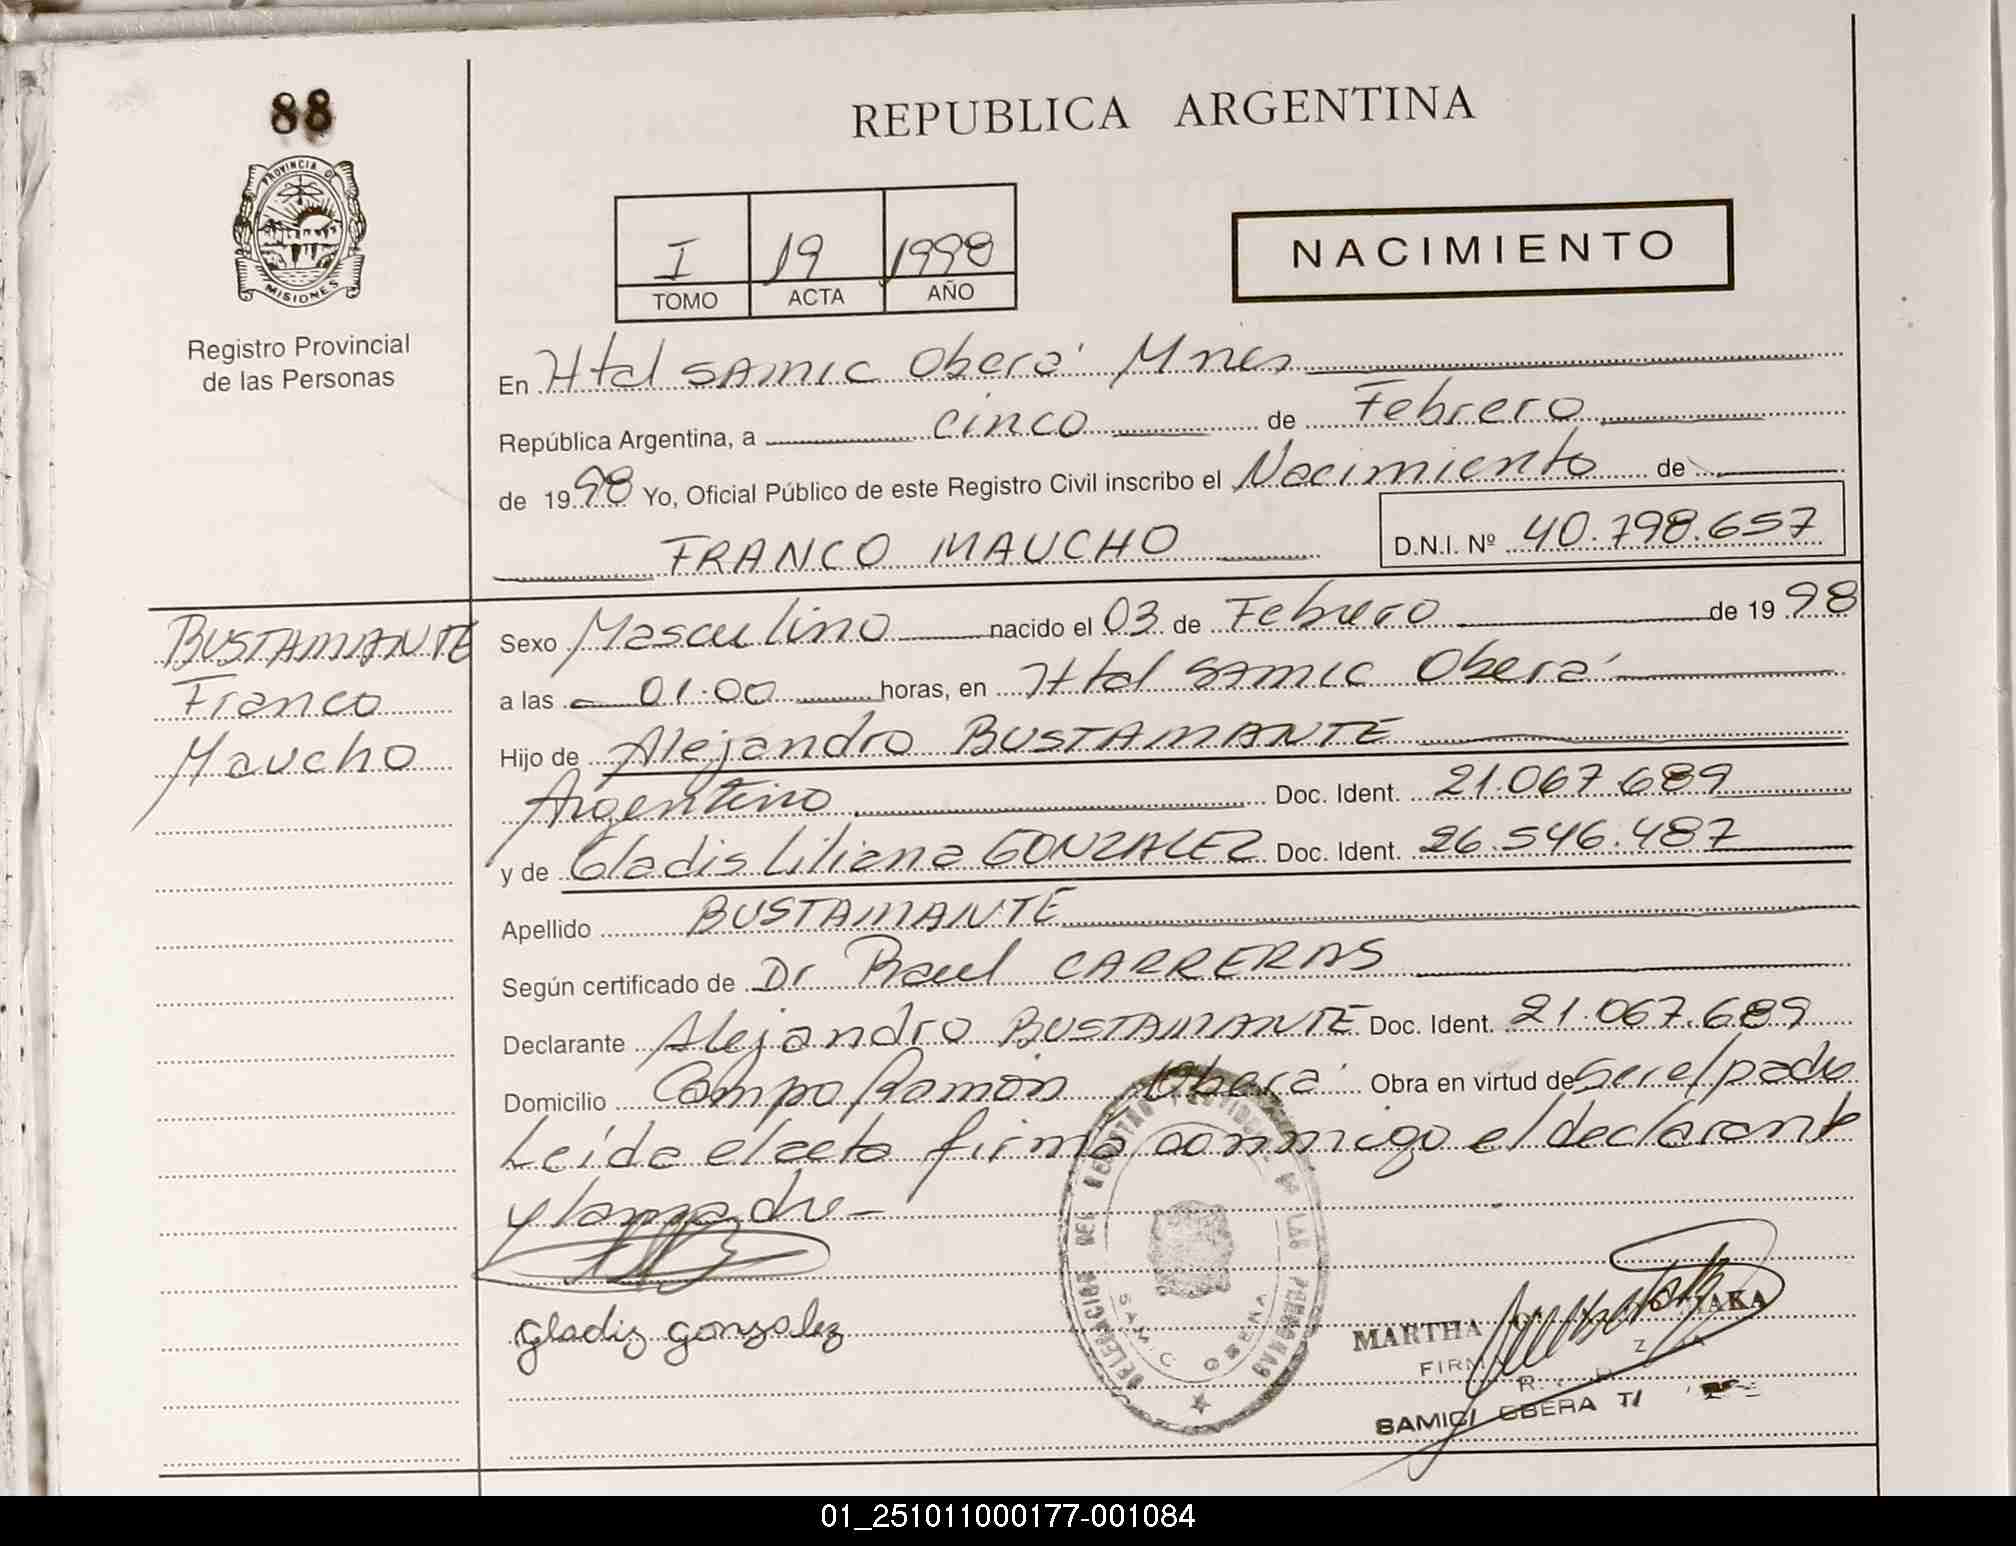 88
REPUBLICA ARGENTINA
PROVINCIA DE
MISIONES
Registro Provincial
de las Personas
I 19 1998
TOMO ACTA AÑO
NACIMIENTO
En Htal SAMIC Oberá Mnes
República Argentina, a cinco de Febrero
de 1998 Yo, Oficial Público de este Registro Civil inscribo el Nacimiento de
FRANCO MAUCHO D.N.I. Nº 40.798.657
BUSTAMANTE
Franco
Maucho
Sexo Masculino nacido el 03 de Febrero de 1998
a las 01.00 horas, en Htal SAMIC Oberá
Hijo de Alejandro BUSTAMANTE
Argentino Doc. Ident. 21.067.689
y de Gladis Liliana GONZALEZ Doc. Ident. 26.546.487
Apellido BUSTAMANTE
Según certificado de Dr Raul CARRERAS
Declarante Alejandro BUSTAMANTE Doc. Ident. 21.067.689
Domicilio Campo Ramón Oberá Obra en virtud de ser el padre
Leída el acta firma conmigo el declarante
y la madre
gladiz gonzalez
DELEGACION DEL REGISTRO PROVINCIAL DE LAS PERSONAS
SAMIC OBERA
MARTHA
SAMIC OBERA
01_251011000177-001084